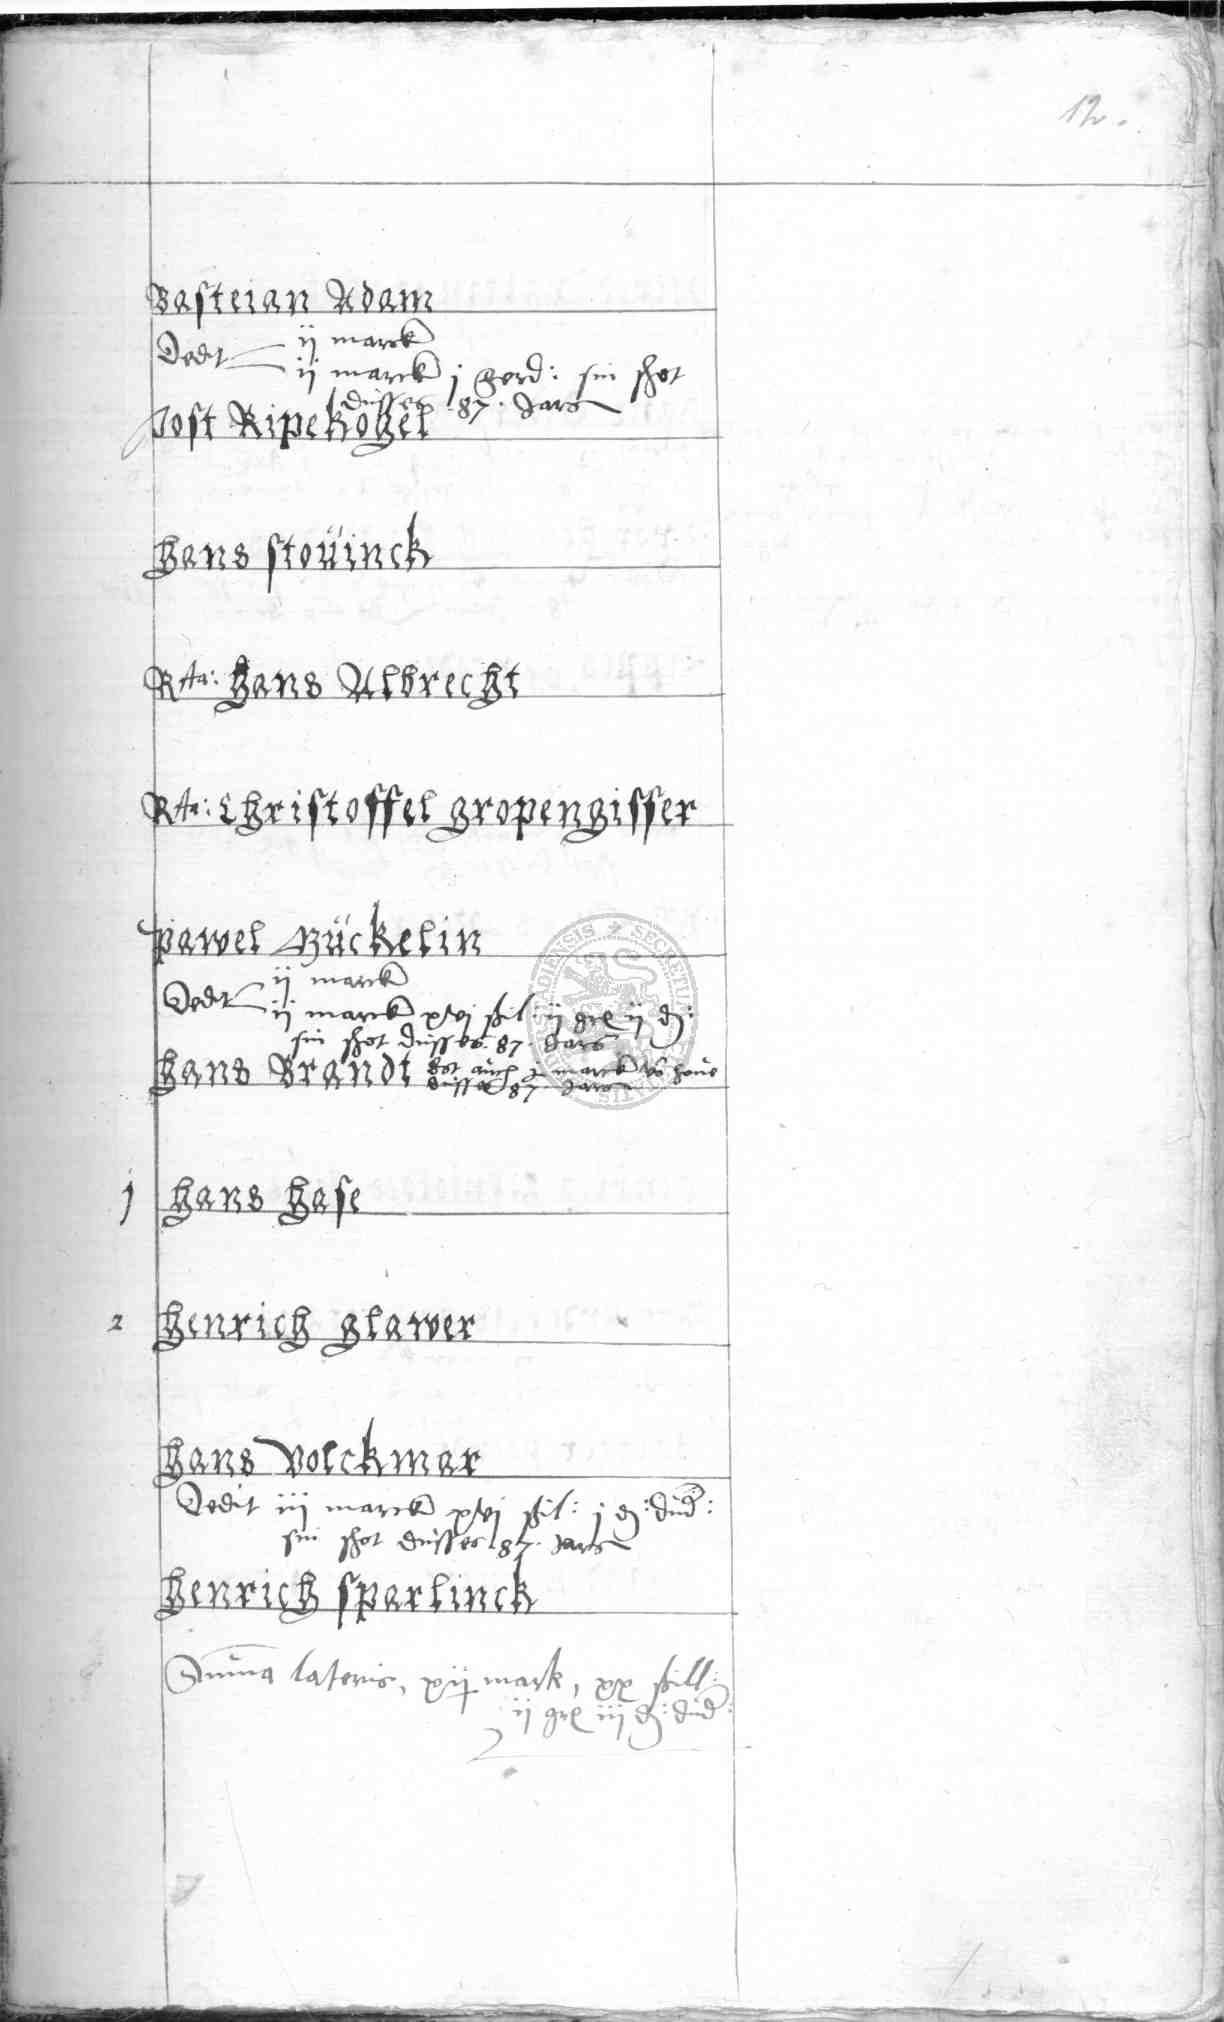 12.
Basteian Adam
Dedit ij marck
ij marck j ferd: sin schot
dusses .87. Jars
Jost Ripekogel
Hans Stouinck
Rta: Hans Albrecht
Rta: Christoffel Gropengisser
Pawel Bückelin
Dedit ij marck
ij marck xvj ßil: ij gr ij d:
sin schot dusses .87. Jars
Hans Brandt
dusses 87 Jars
j Hans Hase
2 Henrich Glawer
Hans Volckmar
Dedit iij marck xvj ßil: j d: dud:
sin schot dusses 87. Jars
Henrich Sparlinck
Summa lateris, xij mark, xx ßill:
ij gr iij d: dud:
SECRETUM